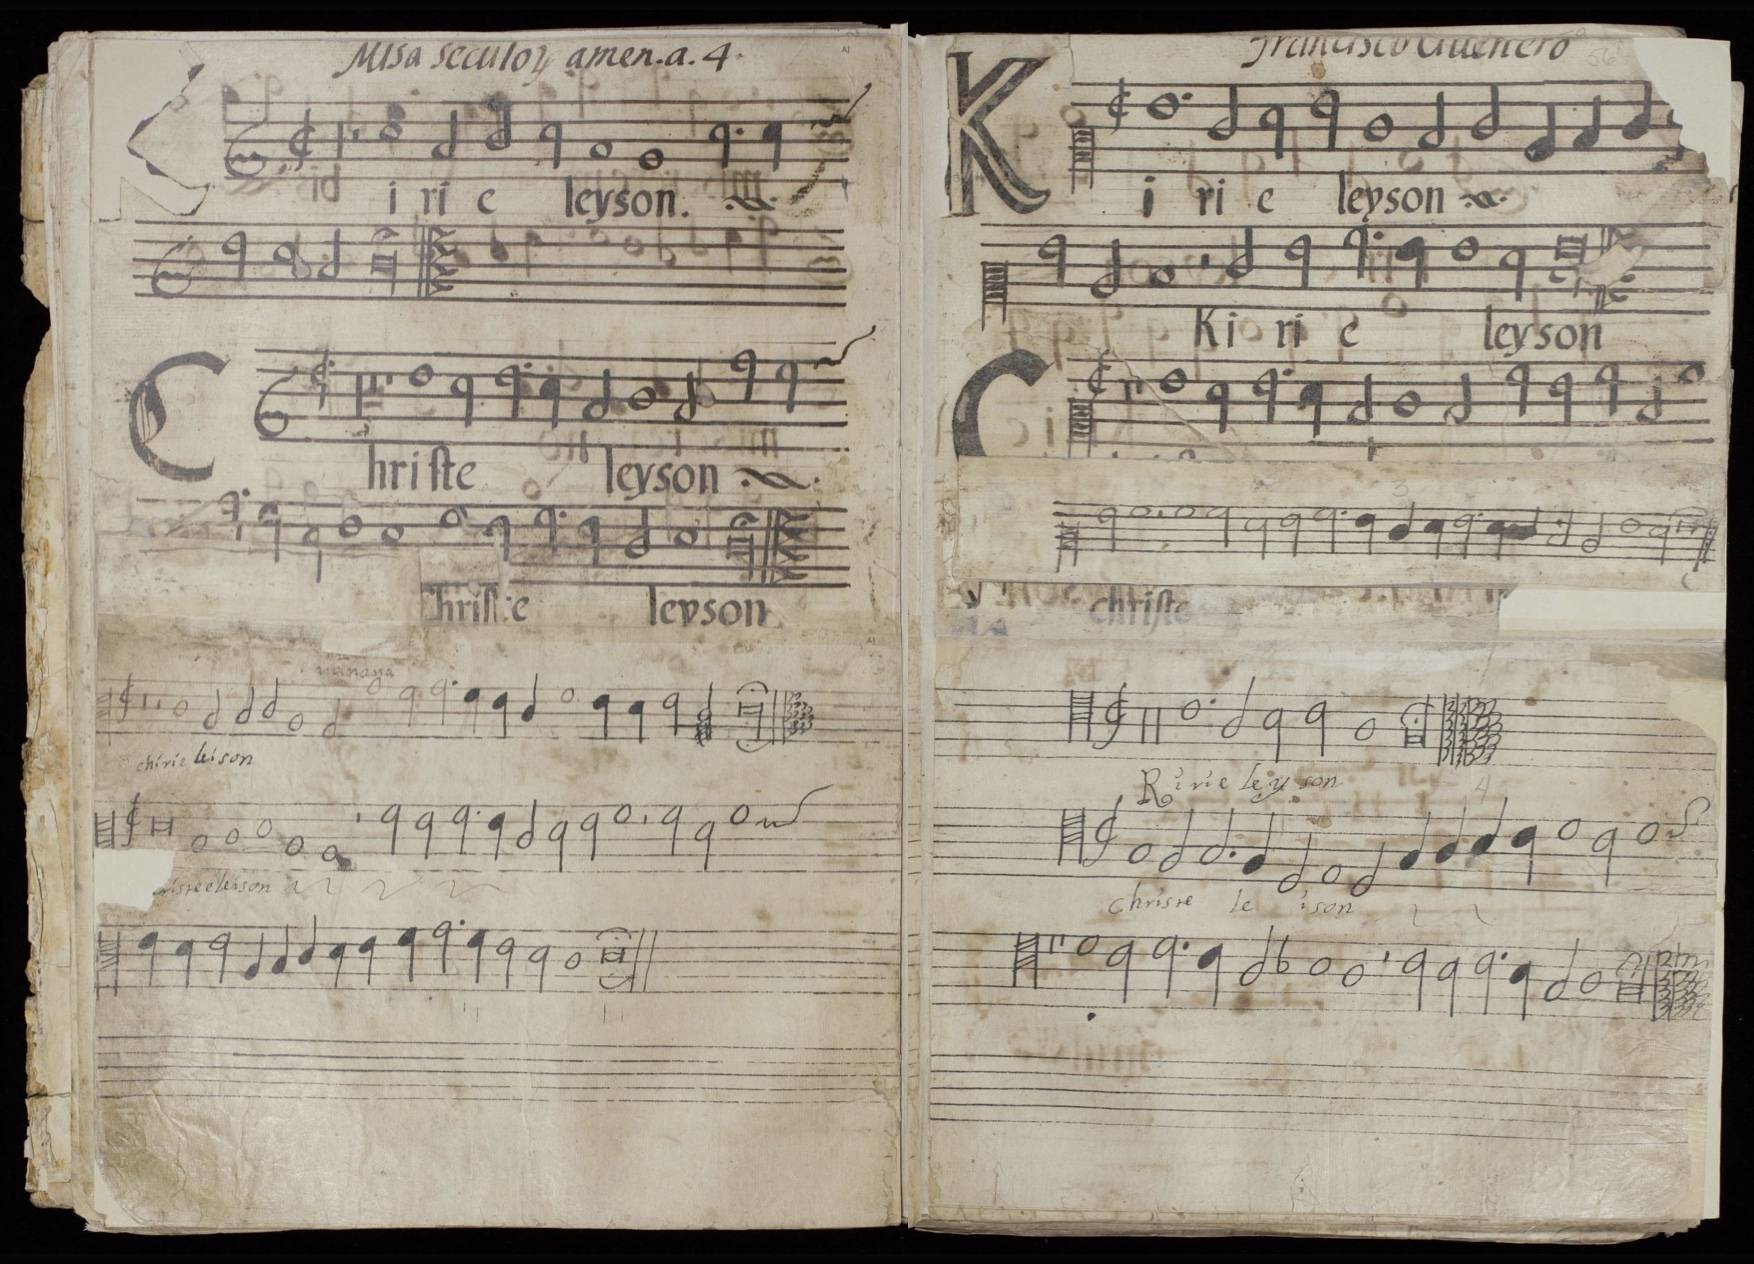 Misa seculoꝝ amen. a. 4.
i ri e leyson.
C
hriſte leyson
hriſte leyson
chirie leison
Francisco Guerrero
K
i ri e leyson
Ki ri e leyson
C
chriſte
Kirie leyson
4
christe le ison